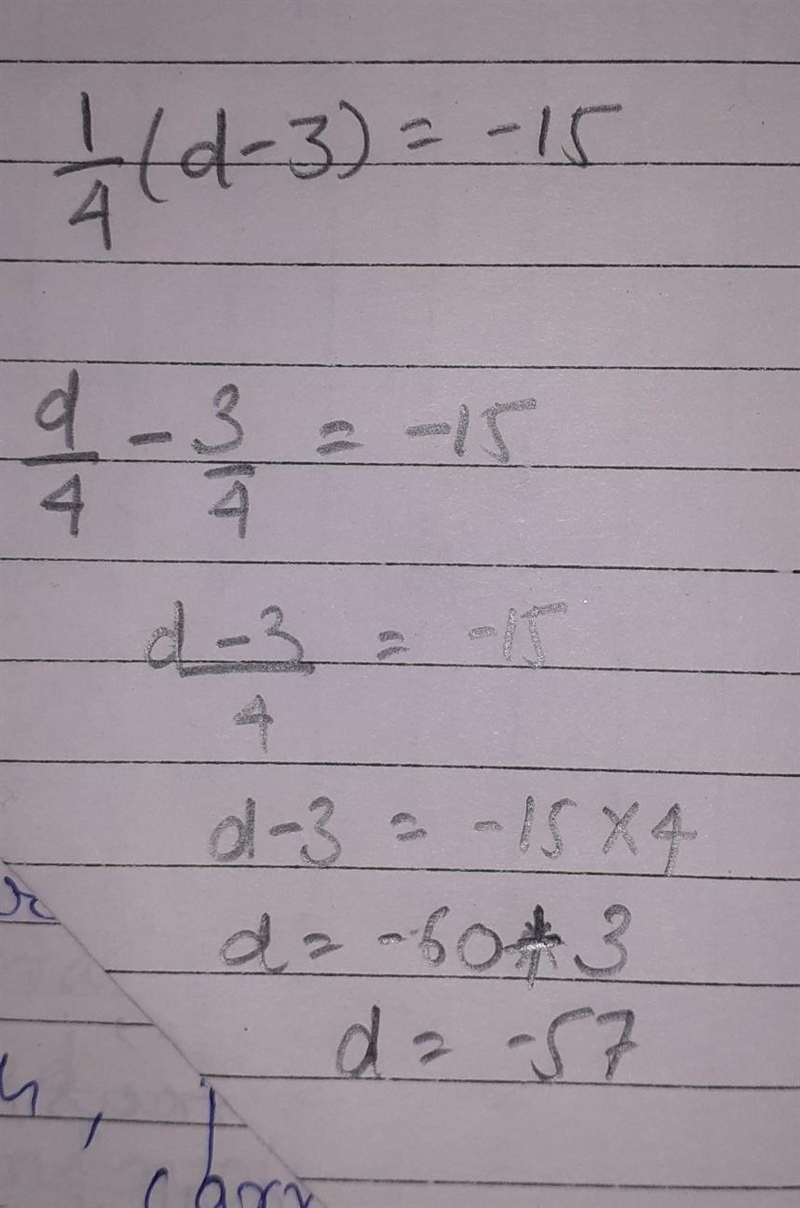 1/4 (d-3) = -15
d/4 - 3/4 = -15
d-3/4 = -15
d-3 = -15 × 4
d = -60 + 3
d = -57